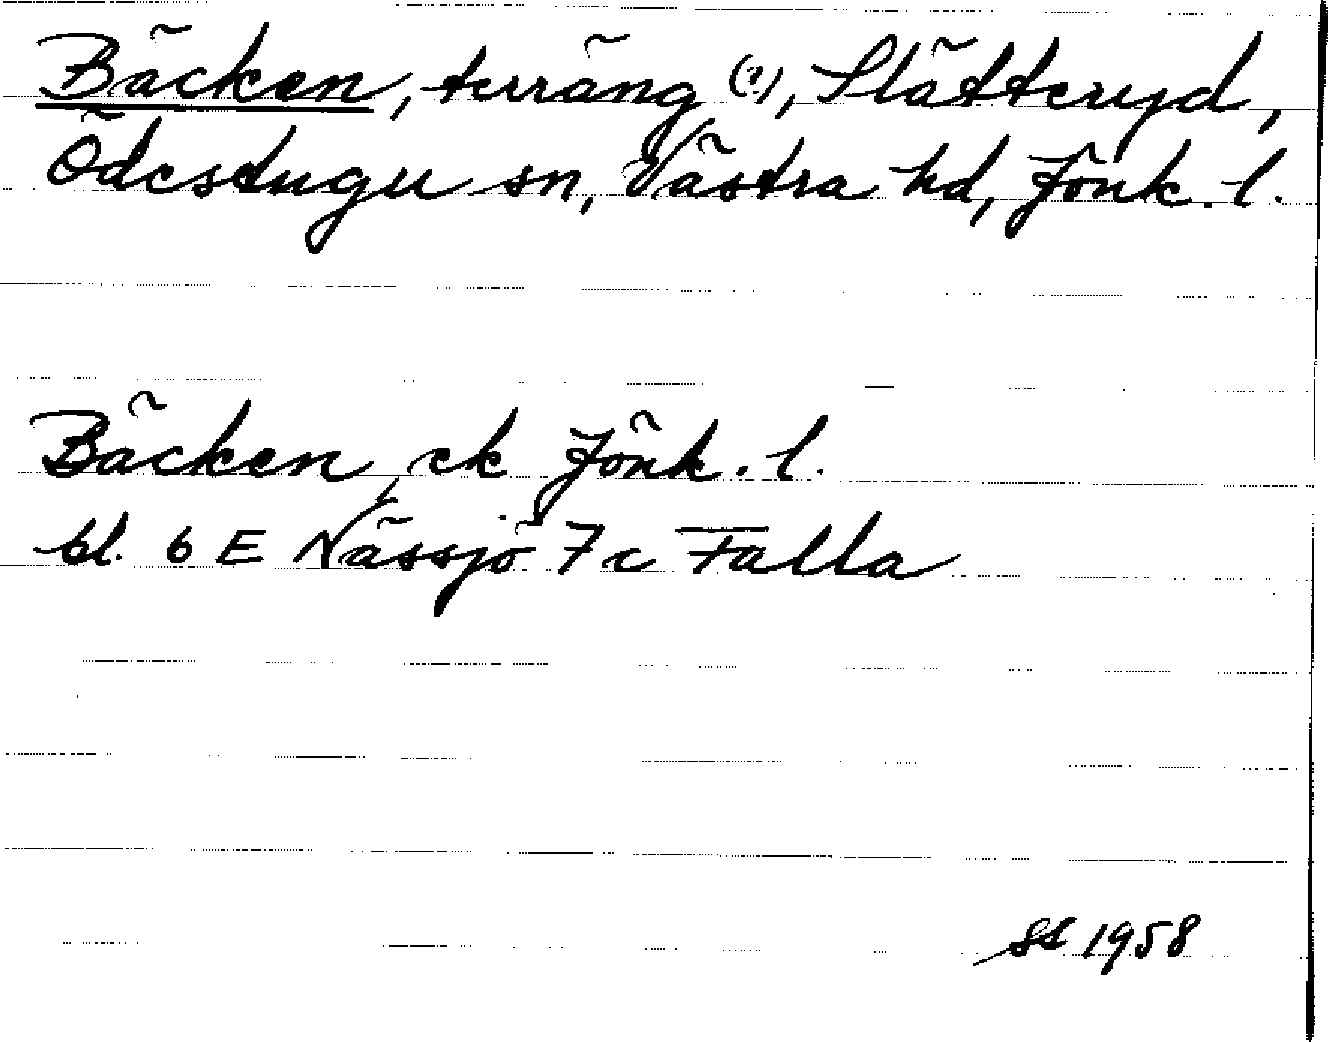 Bäcken, terräng (?), Slätteryd,
Ödestugu sn, Västra hd, Jönk. l.
Bäcken, ek Jönk. l.
bl. 6 E Nässjö 7 c Falla
SS 1958